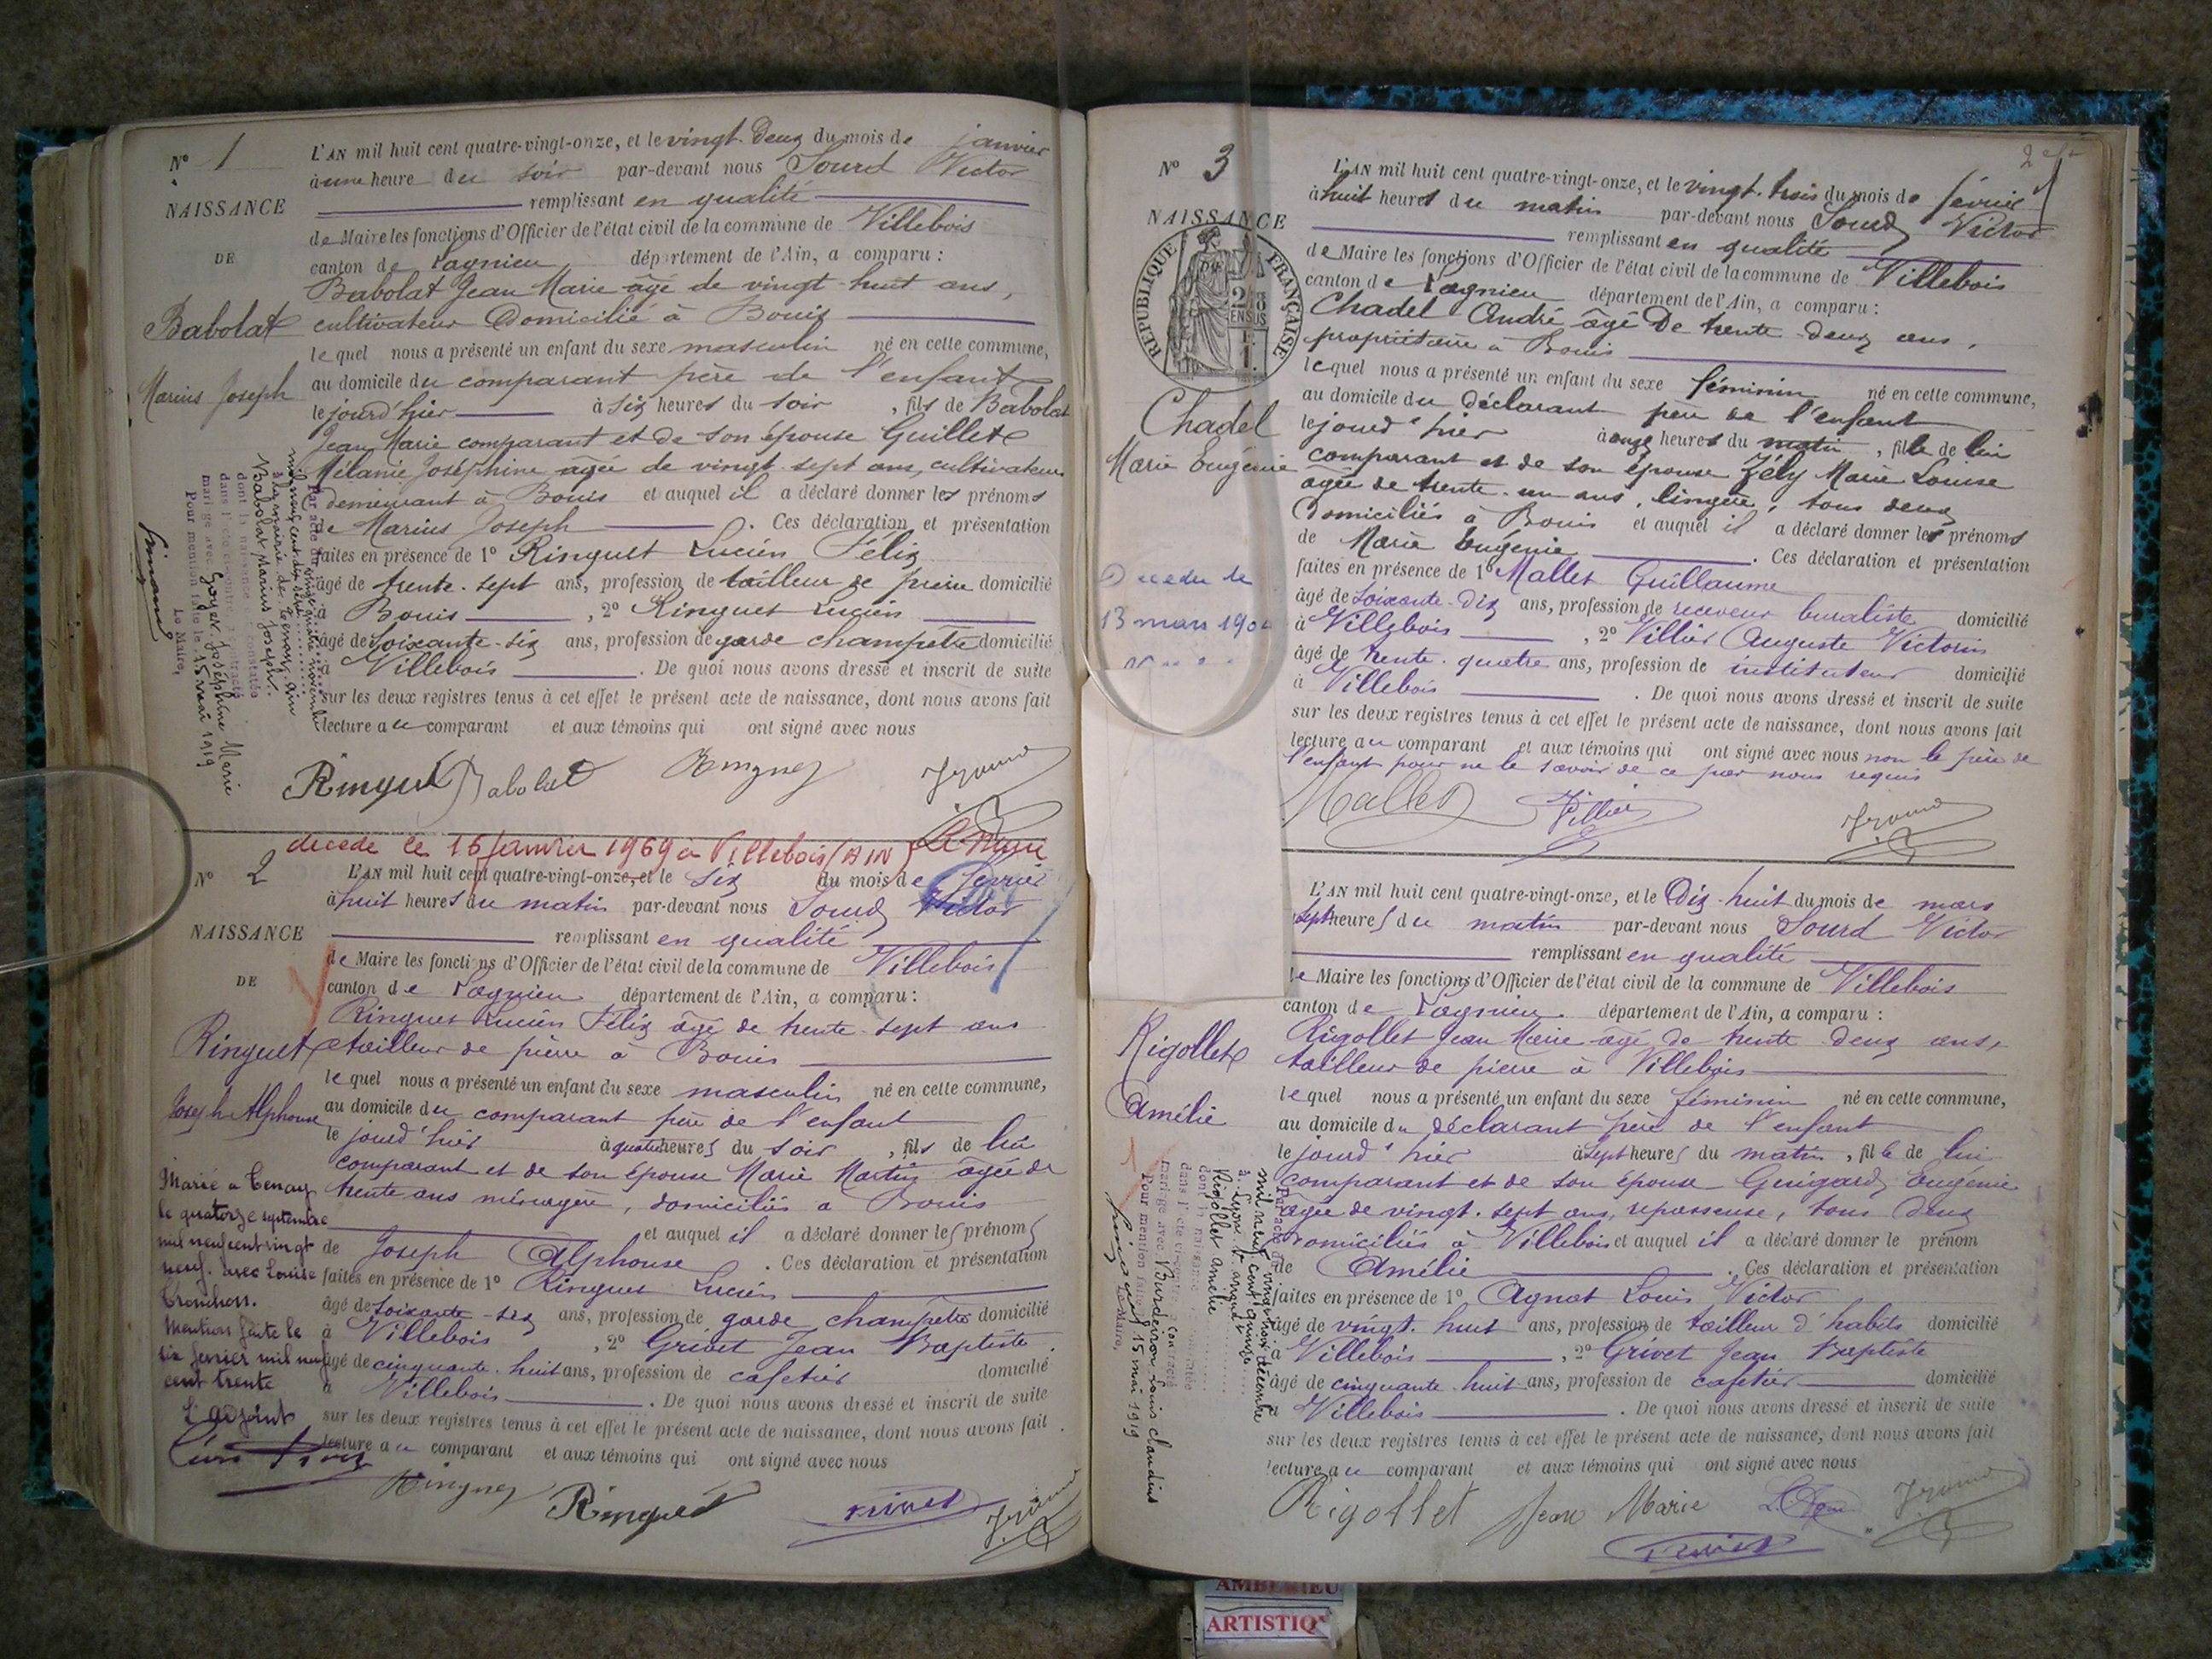 N° 1
NAISSANCE
DE
Babolat
Marius Joseph
L'AN mil huit cent quatre-vingt-onze, et le vingt-deux du mois de janvier
à une heure du soir par-devant nous Sourd Victor
remplissant en qualité
de Maire les fonctions d'Officier de l'état civil de la commune de Villebois
canton de Lagnieu département de l'Ain, a comparu :
Babolat Jean Marie âgé de vingt-huit ans,
cultivateur domicilié à Bouis
lequel nous a présenté un enfant du sexe masculin né en cette commune,
au domicile du comparant père de l'enfant
le jourd'hier à six heures du soir, fils de Babolat
Jean Marie comparant et de son épouse Guillet
Mélanie Joséphine âgée de vingt-sept ans, cultivateurs
demeurant à Bouis et auquel il a déclaré donner les prénoms
de Marius Joseph. Ces déclaration et présentation
faites en présence de 1° Ringuet Lucien Félix
âgé de trente-sept ans, profession de tailleur de pierre domicilié
à Bouis, 2° Ringuet Lucien
âgé de soixante-six ans, profession de garde champêtre domicilié
à Villebois. De quoi nous avons dressé et inscrit de suite
sur les deux registres tenus à cet effet le présent acte de naissance, dont nous avons fait
lecture au comparant et aux témoins qui ont signé avec nous
Ringuet Babolat Ringuet
à la mairie de Tenay, Ain
Babolat Marius Joseph.
dont la naissance constatée
mariage avec Goyet Joséphine Marie
Pour mention faite le 15 mai 1919
Le Maire,
décédé le 15 janvier 1969 à Villebois (AIN) Le Maire
N° 2
NAISSANCE
DE
Ringuet
Joseph Alphonse
L'AN mil huit cent quatre-vingt-onze, et le six du mois de février
à huit heures du matin par-devant nous Sourd Victor
remplissant en qualité
de Maire les fonctions d'Officier de l'état civil de la commune de Villebois
canton de Lagnieu département de l'Ain, a comparu :
Ringuet Lucien Félix âgé de trente-sept ans
tailleur de pierre à Bouis
lequel nous a présenté un enfant du sexe masculin né en cette commune,
au domicile du comparant père de l'enfant
le jourd'hier à quatre heures du soir, fils de lui
comparant et de son épouse Marie Martin âgée de
trente ans ménagère, domiciliés à Bouis
et auquel il a déclaré donner les prénoms
de Joseph Alphonse. Ces déclaration et présentation
faites en présence de 1° Ringuet Lucien
âgé de soixante-six ans, profession de garde champêtre domicilié
à Villebois, 2° Grivet Jean Baptiste
âgé de cinquante-huit ans, profession de cafetier domicilié
à Villebois. De quoi nous avons dressé et inscrit de suite
sur les deux registres tenus à cet effet le présent acte de naissance, dont nous avons fait
lecture au comparant et aux témoins qui ont signé avec nous
Marié à Tenay
le quatorze septembre
mil neuf cent vingt
neuf avec Louise
Mention faite le
six février mil neuf
cent trente
L'adjoint
Ringuet Ringuet Grivet
N° 3
NAISSANCE
DE
RÉPUBLIQUE FRANÇAISE
Chadel
Marie Eugénie
L'AN mil huit cent quatre-vingt-onze, et le vingt-trois du mois de février
à huit heures du matin par-devant nous Sourd Victor
remplissant en qualité
de Maire les fonctions d'Officier de l'état civil de la commune de Villebois
canton de Lagnieu département de l'Ain, a comparu :
Chadel André âgé de trente-deux ans,
propriétaire à Bouis
lequel nous a présenté un enfant du sexe féminin né en cette commune,
au domicile du déclarant père de l'enfant
le jourd'hier à onze heures du matin, fille de lui
comparant et de son épouse Fély Marie Louise
âgée de trente-un ans, lingère, tous deux
domiciliés à Bouis et auquel il a déclaré donner les prénoms
de Marie Eugénie. Ces déclaration et présentation
faites en présence de 1° Mallet Guillaume
âgé de soixante-dix ans, profession de receveur buraliste domicilié
à Villebois, 2° Villier Auguste Victorin
âgé de trente-quatre ans, profession de instituteur domicilié
à Villebois. De quoi nous avons dressé et inscrit de suite
sur les deux registres tenus à cet effet le présent acte de naissance, dont nous avons fait
lecture au comparant et aux témoins qui ont signé avec nous non le père de
l'enfant pour ne le savoir de ce par nous requis
Mallet Villier
Décédée le
13 mars
Rigollet
Amélie
L'AN mil huit cent quatre-vingt-onze, et le dix-huit du mois de mars
sept heures du matin par-devant nous Sourd Victor
remplissant en qualité
de Maire les fonctions d'Officier de l'état civil de la commune de Villebois
canton de Lagnieu département de l'Ain, a comparu :
Rigollet Jean Marie âgé de trente-deux ans,
tailleur de pierre à Villebois
lequel nous a présenté un enfant du sexe féminin né en cette commune,
au domicile du déclarant père de l'enfant
le jourd'hier à sept heures du matin, fille de lui
comparant et de son épouse Guigard Eugénie
âgée de vingt-sept ans, repasseuse, tous deux
domiciliés à Villebois et auquel il a déclaré donner le prénom
de Amélie. Ces déclaration et présentation
faites en présence de 1° Agnat Louis Victor
âgé de vingt-huit ans, profession de tailleur d'habits domicilié
à Villebois, 2° Grivet Jean Baptiste
âgé de cinquante-huit ans, profession de cafetier domicilié
à Villebois. De quoi nous avons dressé et inscrit de suite
sur les deux registres tenus à cet effet le présent acte de naissance, dont nous avons fait
lecture au comparant et aux témoins qui ont signé avec nous
Rigollet Jean Marie
mil neuf cent quinze
Rigollet Amélie
Pour mention faite le 15 mai 1919
Le Maire,
AMBERIEU
ARTISTIQ